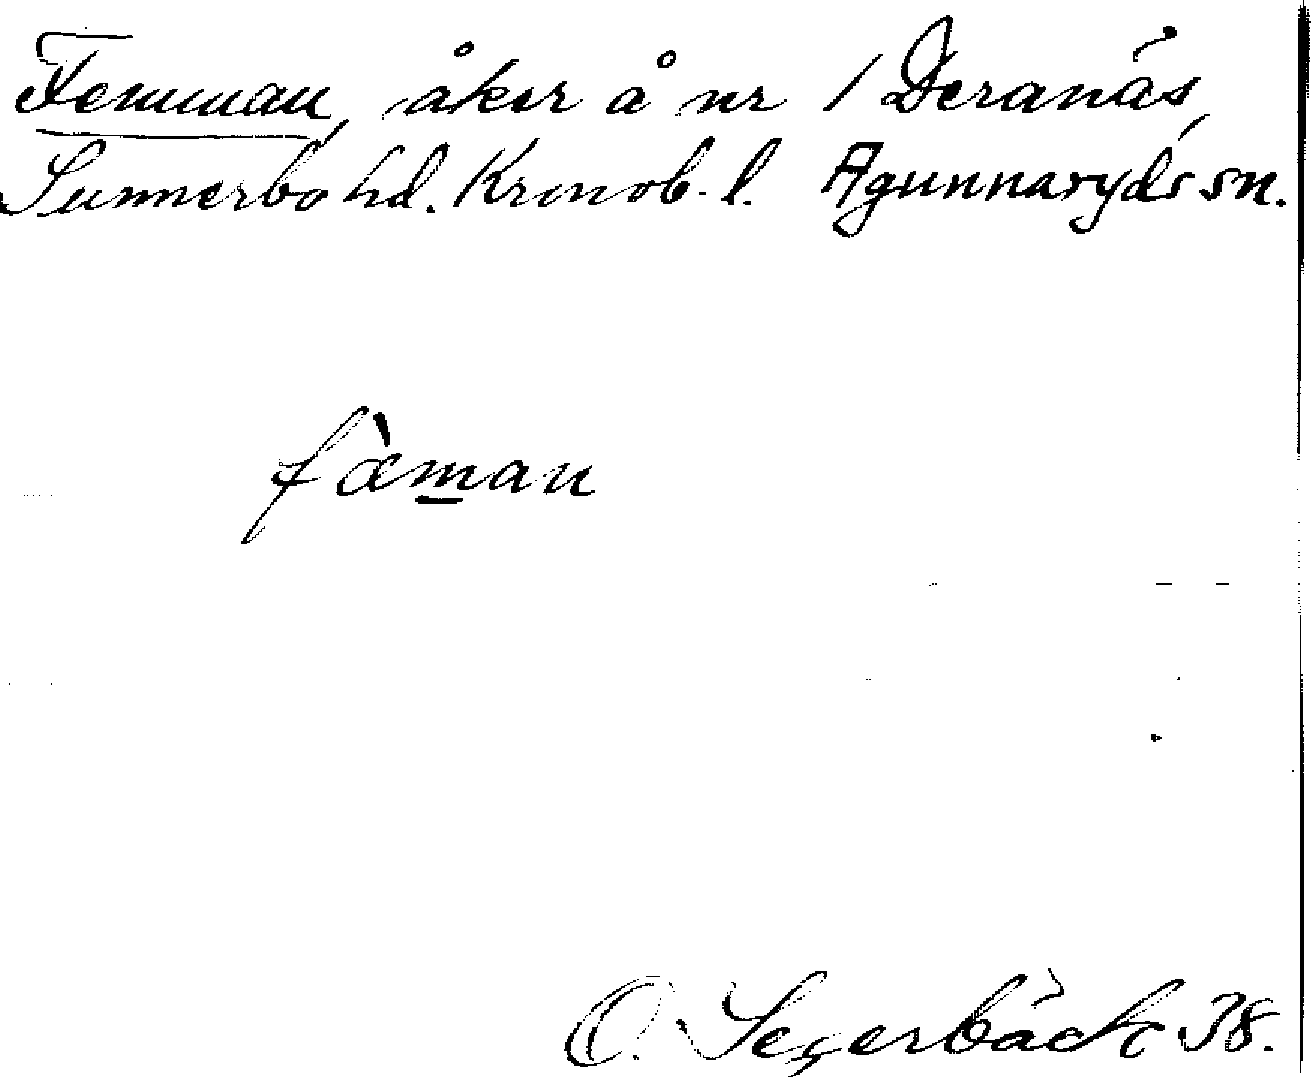 Femman, åker å nr 1 Deranäs,
Sunnerbo hd. Kronob. l. Agunnaryds sn.
fæ̀man
O. Segerbäck 38.